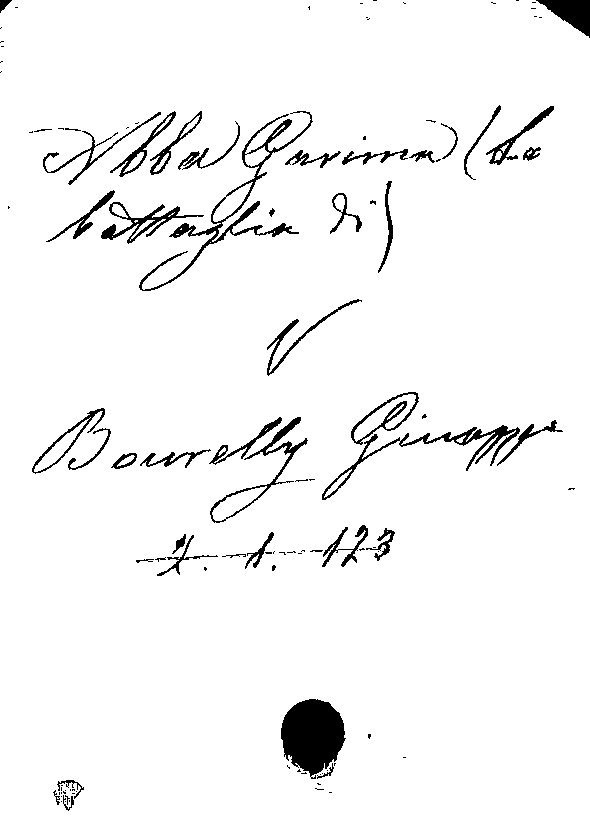 Abba Garima (La
battaglia di)
V
Bourelly Giuseppe
X. 1. 123